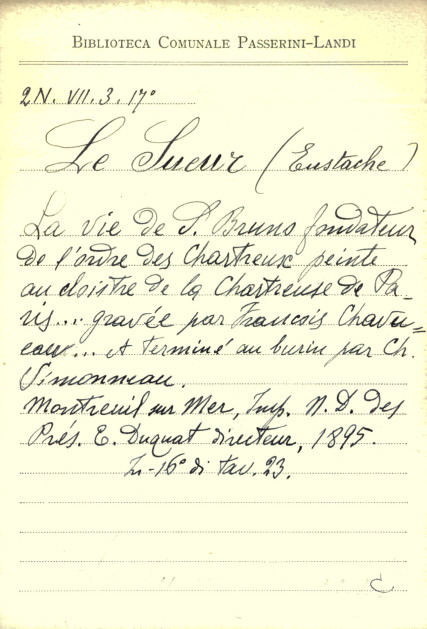 BIBLIOTECA COMUNALE PASSERINI-LANDI
2N. VII. 3. 17°
Le Sueur (Eustache)
La vie de S. Bruno fondateur
de l'ordre des Chartreux peinte
au cloistre de la Chartreuse de Pa-
ris... gravée par François Chavu=
eaux... et terminé au burin par Ch.
Simonneau.
Montreuil sur Mer, Imp. N. D. des
Prés. E. Duquat directeur, 1895.
In-16° di tav. 23.
C